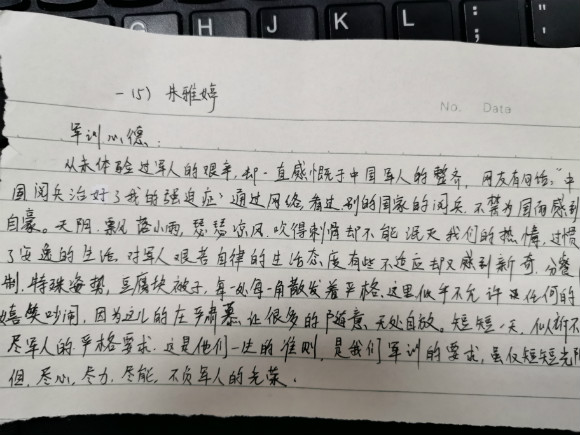 H J K L : ; " '
一(5) 朱雅婷
No. Data
军训心德:
从未体验过军人的艰辛,却一直感慨于中国军人的整齐,网友有句话:"中
国阅兵治好了我的强迫症"通过网络,看过别的国家的阅兵,不禁为国而感到
自豪。天阴,飘落小雨,瑟瑟凉风,吹得刺骨却不能泯灭我们的热情,过惯
了安逸的生活,对军人艰苦自律的生活态度有些不适应却又感到新奇,分餐
制,特殊海垫,豆腐块被子,每一处每一角散发着严格,这里似乎不允许任何的
嬉笑吵闹,因为这儿的庄肃穆,让很多的随意,无处自放。短短一天,似
尽军人的严格要求,这是他们一生的准则,是我们军训的要求,虽仅短短
但,尽心,尽力,尽能,不负军人的光荣。